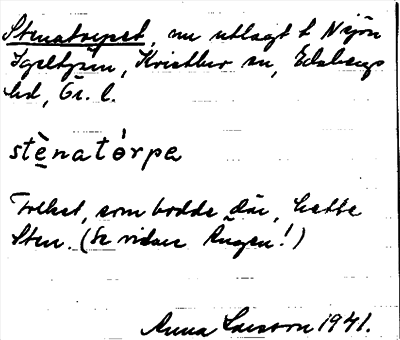 Stenatorpet, nu utlagt t. N sjön
Igeltjärn, Kristbur sn, Edsbergs
hd, Ör. l.
stènatórpa
Folket, som bodde där, hette
Sten. (Se vidare Ängen!)
Anna Larsson 1941.